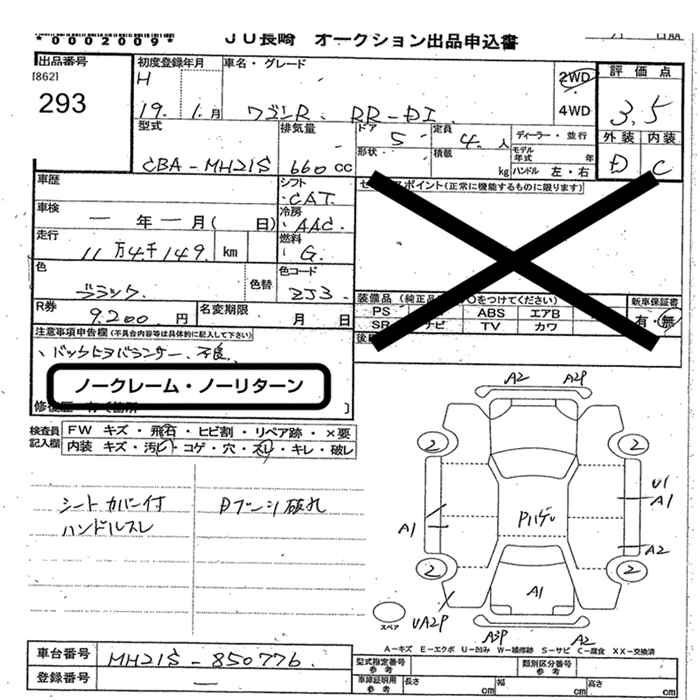 *0002009*
JU長崎 オークション出品申込書
出品番号
[862]
293
初度登録年月
H
19. 1. 月
車名・グレード
ワゴンR RR-DI
2WD
4WD
評価点
3.5
外装 内装
D C
型式
CBA-MH21S
排気量
660 cc
ドア 5
定員 4. 人
形状
積載
kg
ディーラー・並行
モデル年式 年
ハンドル 左・右
車歴
車検
一 年 一 月( 日)
走行
11万4千149. km
色
ブラック.
色替
シフト
CAT.
冷房
AAC.
燃料
G.
色コード
ZJ3.
ポイント(正常に機能するものに限ります)
装備品(純正品 ○をつけてください)
PS
ABS エアB
SR ナビ TV カワ
新車保証書
有・無
後
R券
9200 円
名変期限
月 日
注意事項申告欄(不具合内容等は具体的に記入して下さい)
不良
ノークレーム・ノーリターン
検査員記入欄
FW キズ・飛石・ヒビ割・リペア跡・×要
内装 キズ・汚レ・コゲ・穴・スレ・キレ・破レ
シートカバー付
ハンドルスレ
Dブーツ破れ
A2 A2P
2 2
U1
A1
A1
Pハゲ
A2
2 2
A1
UA2P
A3P A2
スペア
A-キズ E-エクボ U-凹み W-補修跡 S-サビ C-腐食 XX-交換済
車台番号
MH21S-850776.
登録番号
一
型式指定番号
参考
類別区分番号
参考
車庫証明用
参考
長さ cm
幅 cm
高さ cm